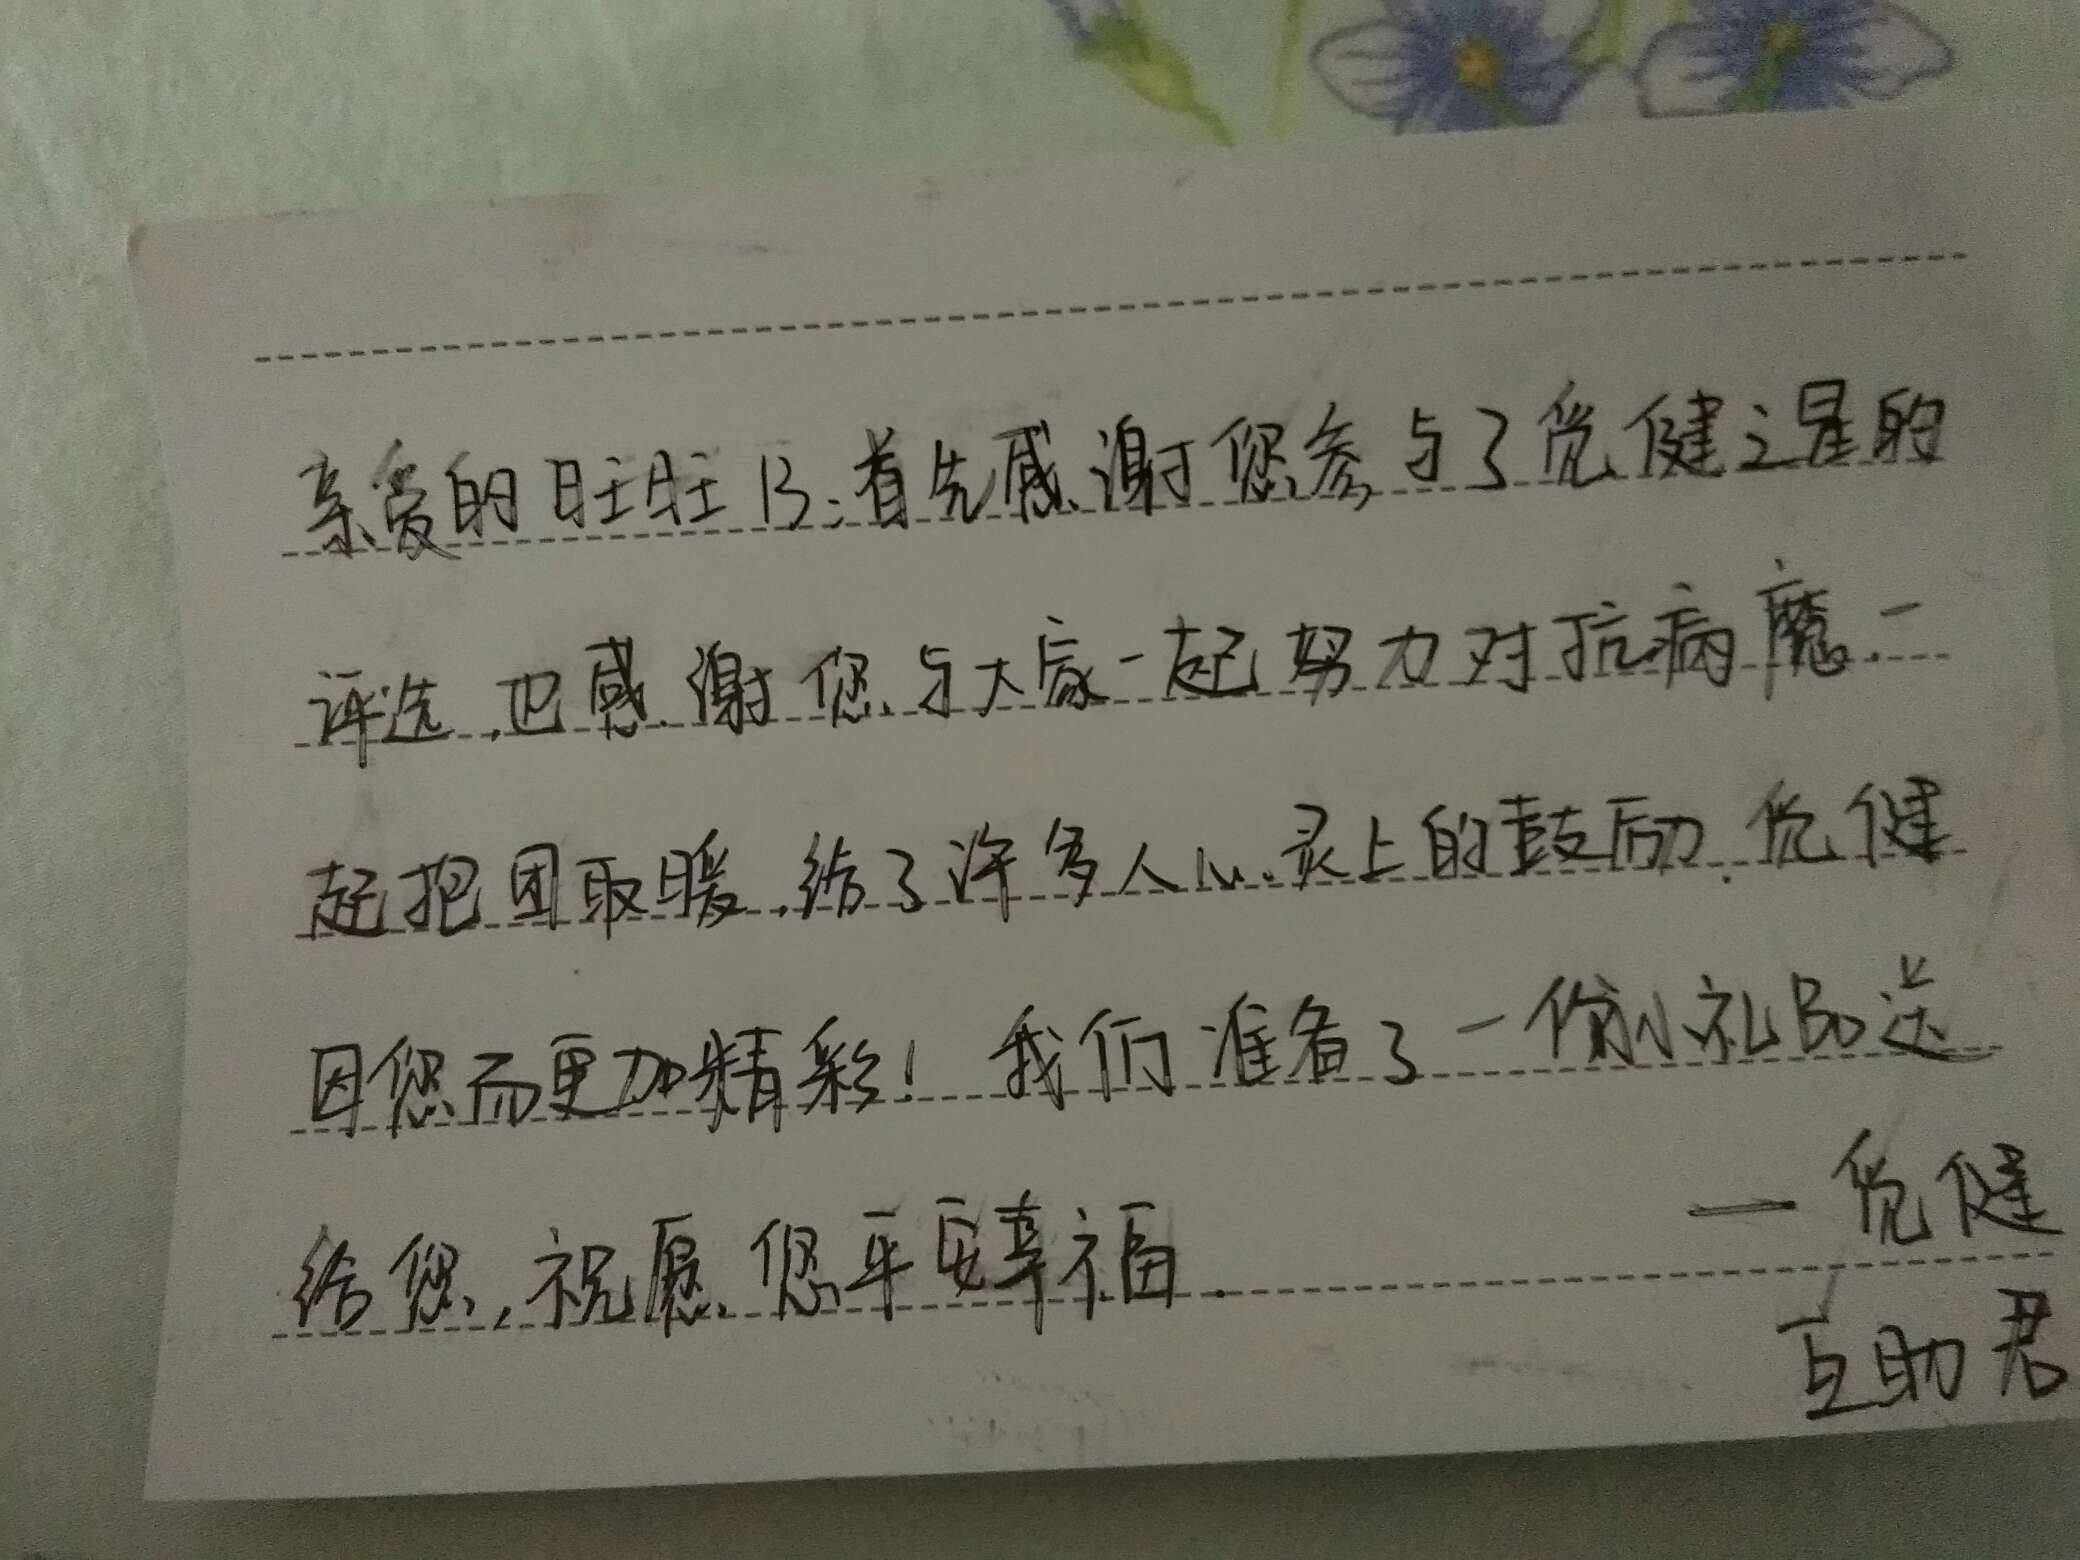 亲爱的旺旺B:首先感谢您参与了觉健之星的
评选,也感谢您与大家一起努力对抗病魔.一
起抱团取暖,给了许多人心灵上的鼓励.觉健
因您而更加精彩!我们准备了一份小礼品送
给您,祝愿您平安幸福.
—觉健
互助君